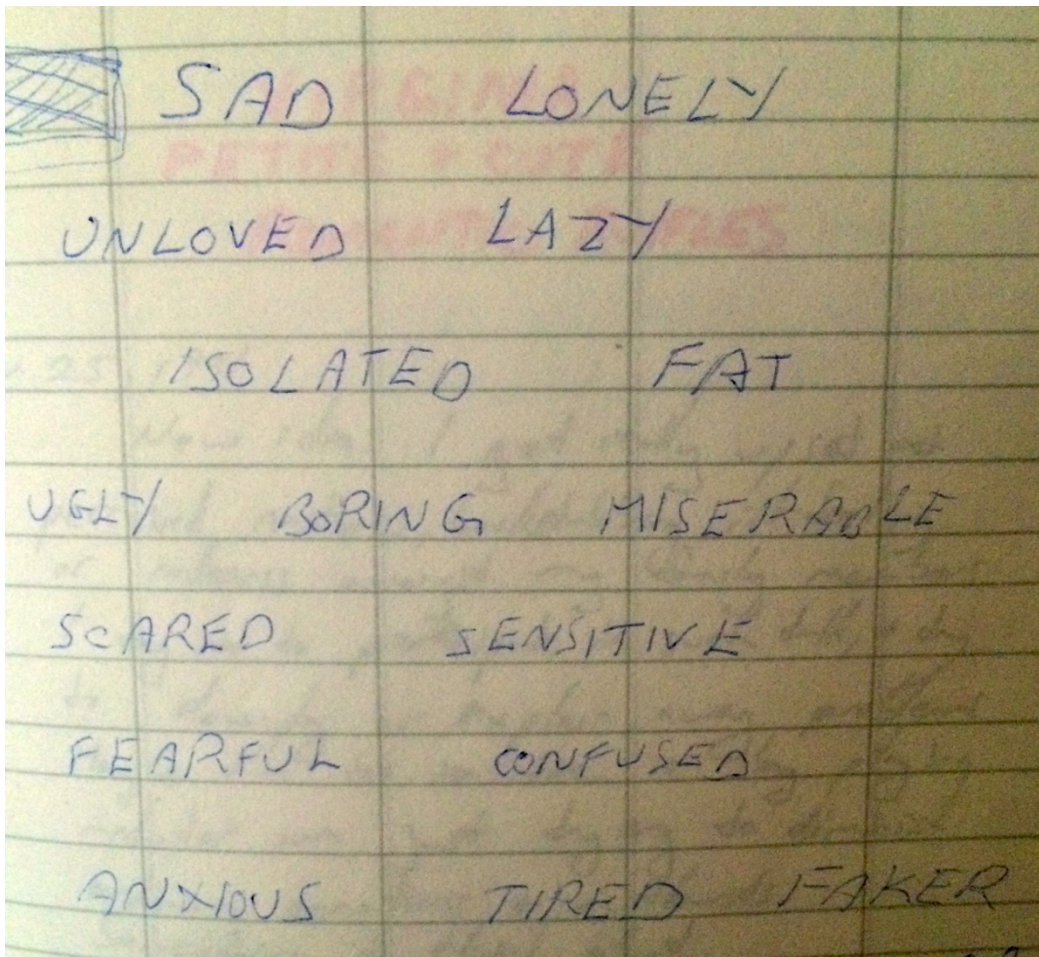 SAD LONELY
UNLOVED LAZY
ISOLATED FAT
UGLY BORING MISERABLE
SCARED SENSITIVE
FEARFUL CONFUSED
ANXIOUS TIRED FAKER